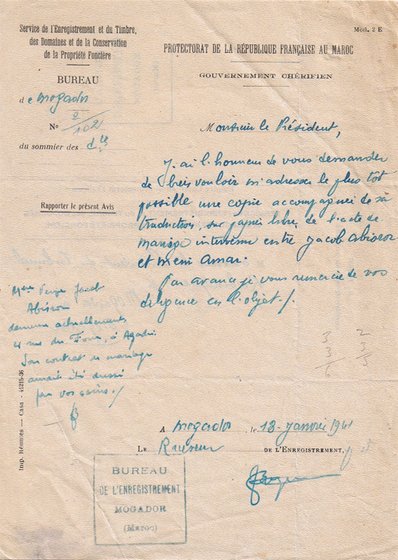 Service de l'Enregistrement et du Timbre,
des Domaines et de la Conservation
de la Propriété Foncière
Mod. 2 E
PROTECTORAT DE LA RÉPUBLIQUE FRANÇAISE AU MAROC
GOUVERNEMENT CHÉRIFIEN
BUREAU
de Mogador
N° 2/102
du sommier des
Rapporter le présent Avis
Monsieur le Président,
J'ai l'honneur de vous demander
de bien vouloir m'adresser le plus tôt
possible une copie accompagnée de sa
traduction, sur papier libre, de l'acte de
mariage intervenu entre Jacob Abisror
et Meni Amar.
Par avance je vous remercie de vos
diligence en l'objet./.
Jacob
Abisror
demeure actuellement
rue du Four, à Agadir
Son contrat de mariage
aurait été dressé
par vos soins./.
3 2
3 3
6 5
A Mogador, le 18 Janvier 1941
LE Receveur DE L'ENREGISTREMENT,
BUREAU
DE L'ENREGISTREMENT
MOGADOR
(Maroc)
Imp. Réunies — Casa - 45215-36